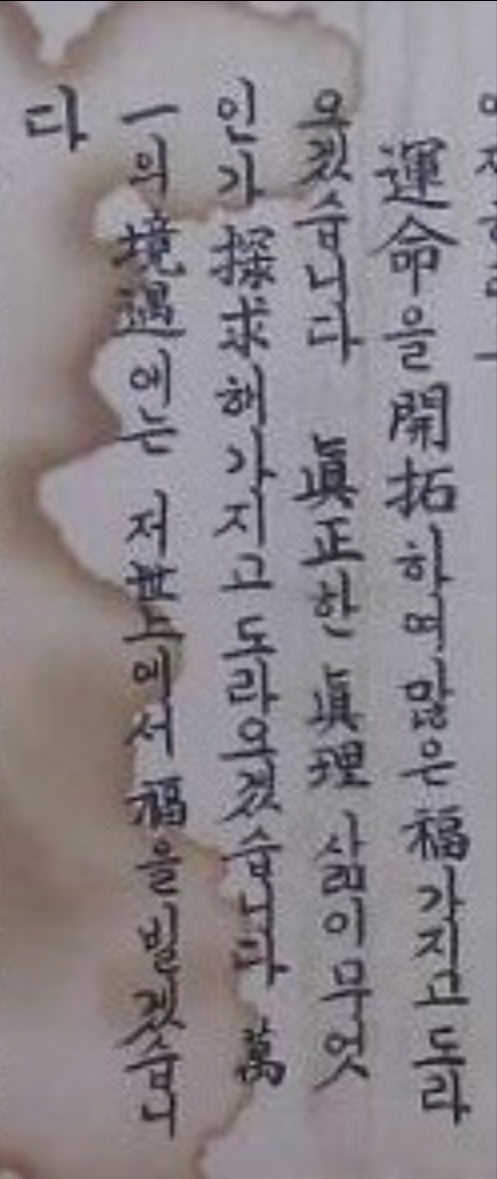 運命을 開拓하며 많은 福 가지고 도라
오겠습니다 眞正한 眞理 삶이 무엇
인가 探求해 가지고 도라오겠습니다 萬
一의 境遇에는 저 世上에서 福을 빌겠습니
다